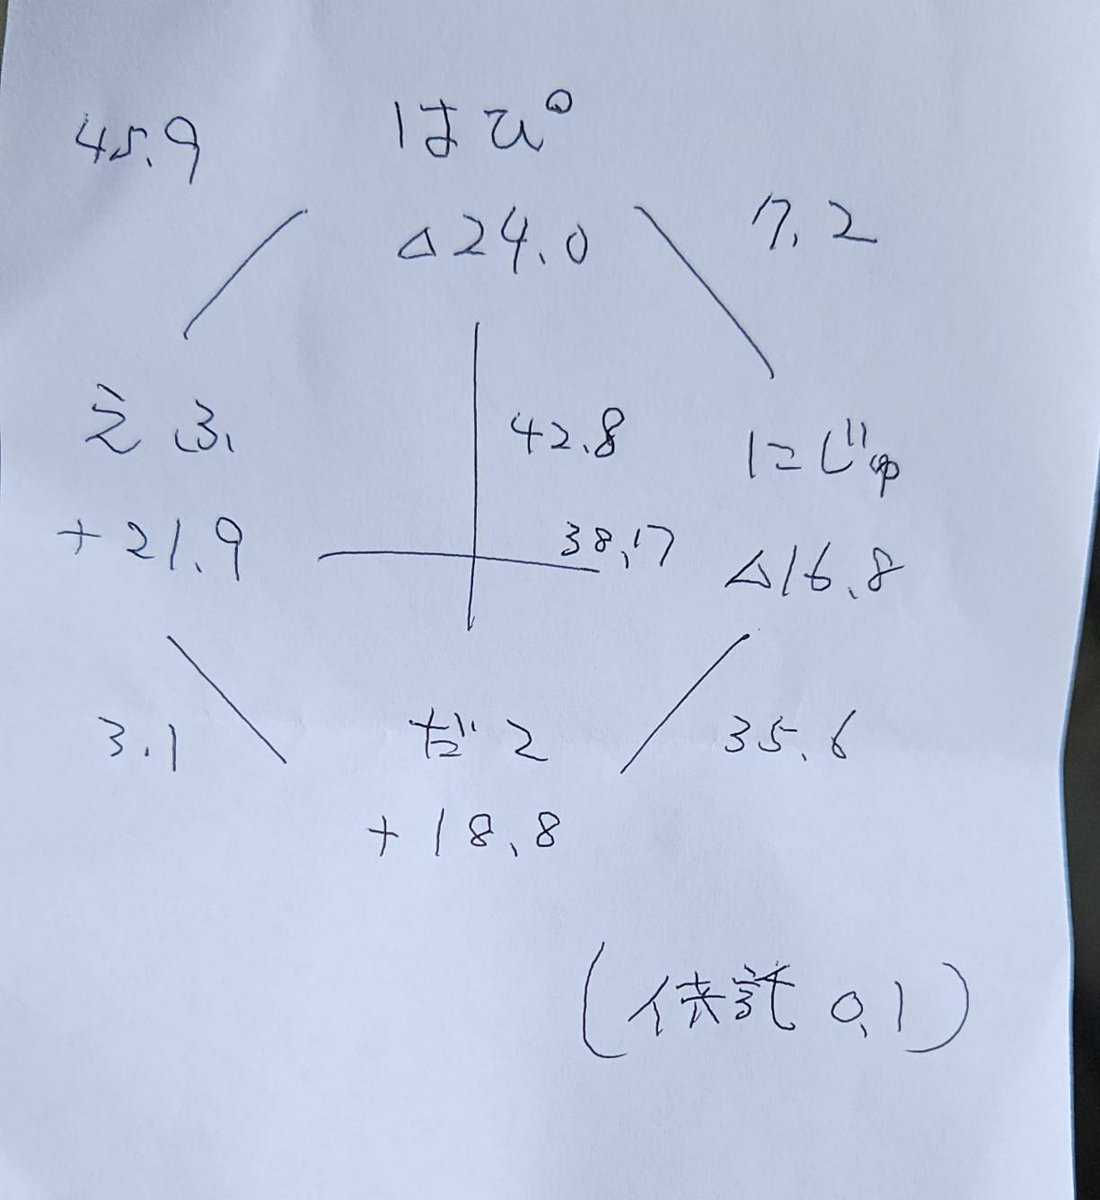 45.9
はぴ
△24.0
7.2
えふ
+21.9
42.8
38.7
にじゅ
△16.8
3.1
だて
+18.8
35.6
(供託 0.1)